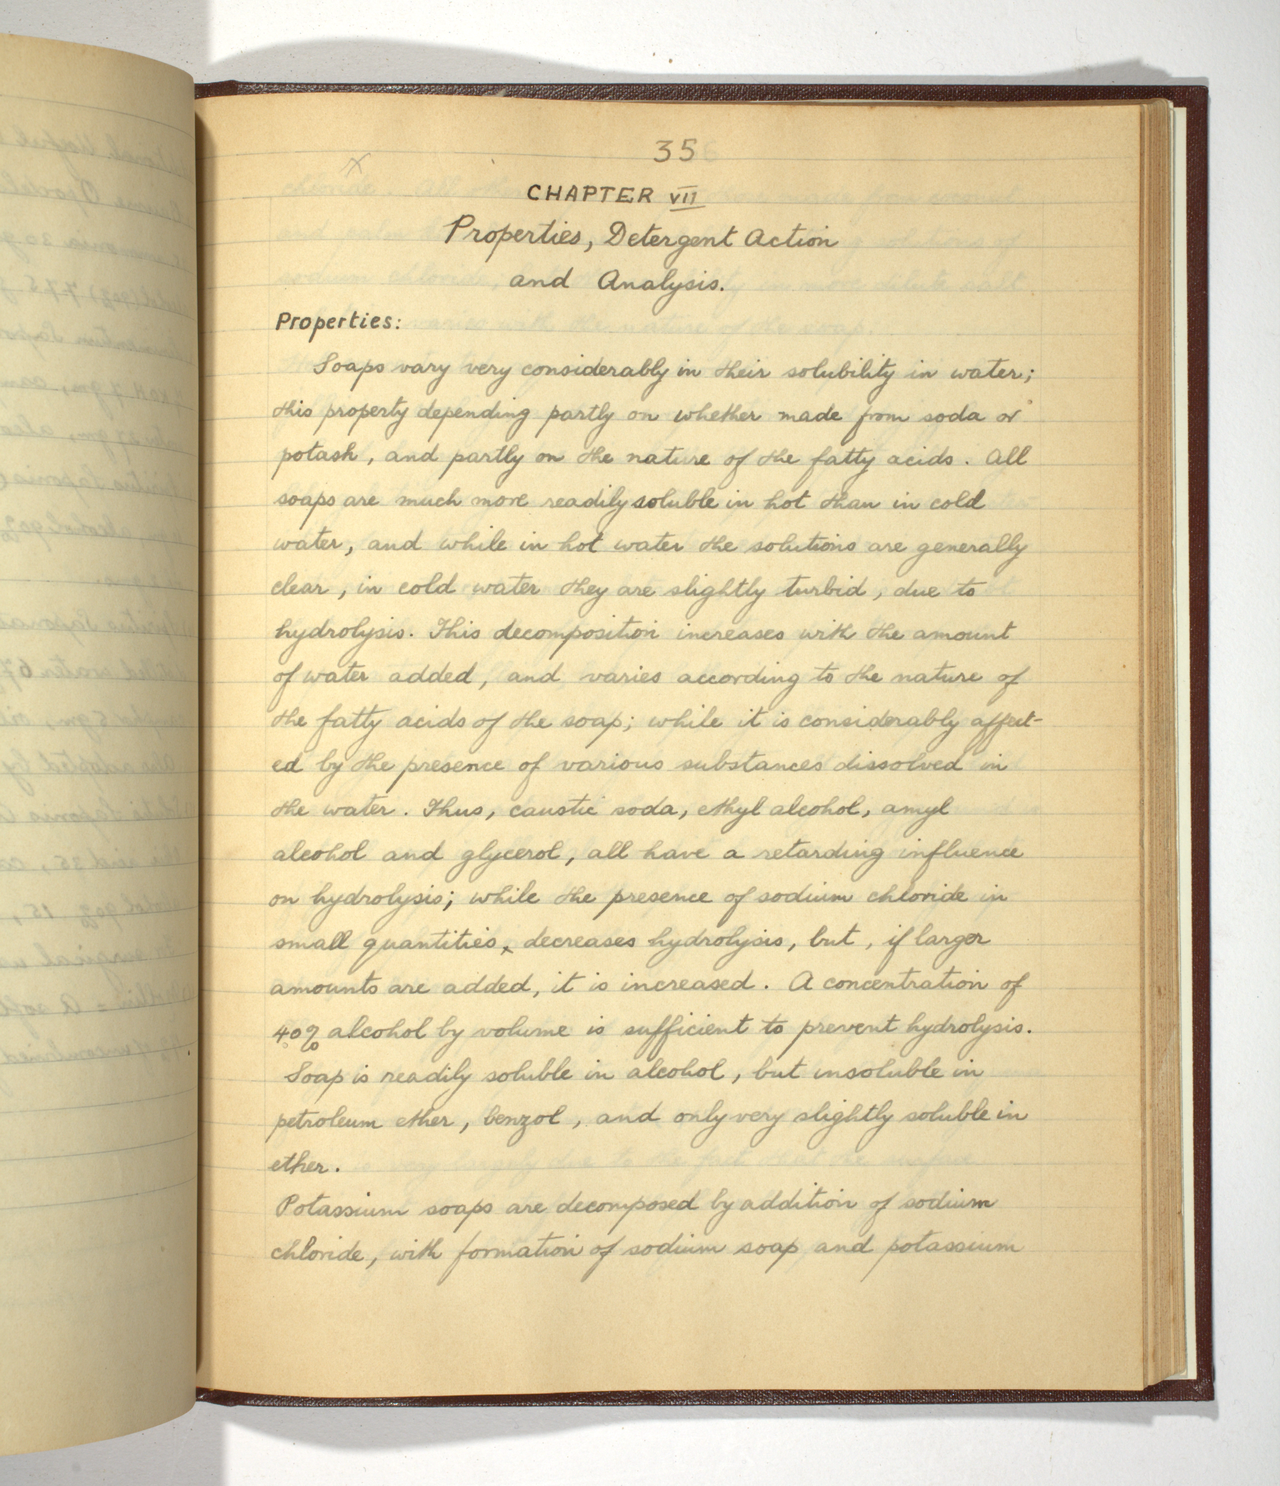 35
CHAPTER VII
Properties, Detergent Action
and Analysis.
Properties:
Soaps vary very considerably in their solubility in water;
this property depending partly on whether made from soda or
potash, and partly on the nature of the fatty acids. All
soaps are much more readily soluble in hot than in cold
water, and while in hot water the solutions are generally
clear, in cold water they are slightly turbid, due to
hydrolysis. This decomposition increases with the amount
of water added, and varies according to the nature of
the fatty acids of the soap; while it is considerably affect-
ed by the presence of various substances dissolved in
the water. Thus, caustic soda, ethyl alcohol, amyl
alcohol and glycerol, all have a retarding influence
on hydrolysis; while the presence of sodium chloride in
small quantities, decreases hydrolysis, but, if larger
amounts are added, it is increased. A concentration of
40% alcohol by volume is sufficient to prevent hydrolysis.
Soap is readily soluble in alcohol, but insoluble in
petroleum ether, benzol, and only very slightly soluble in
ether.
Potassium soaps are decomposed by addition of sodium
chloride, with formation of sodium soap and potassium